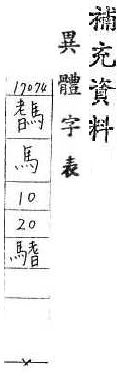 補充資料
異體字表
17074
馬
10
20